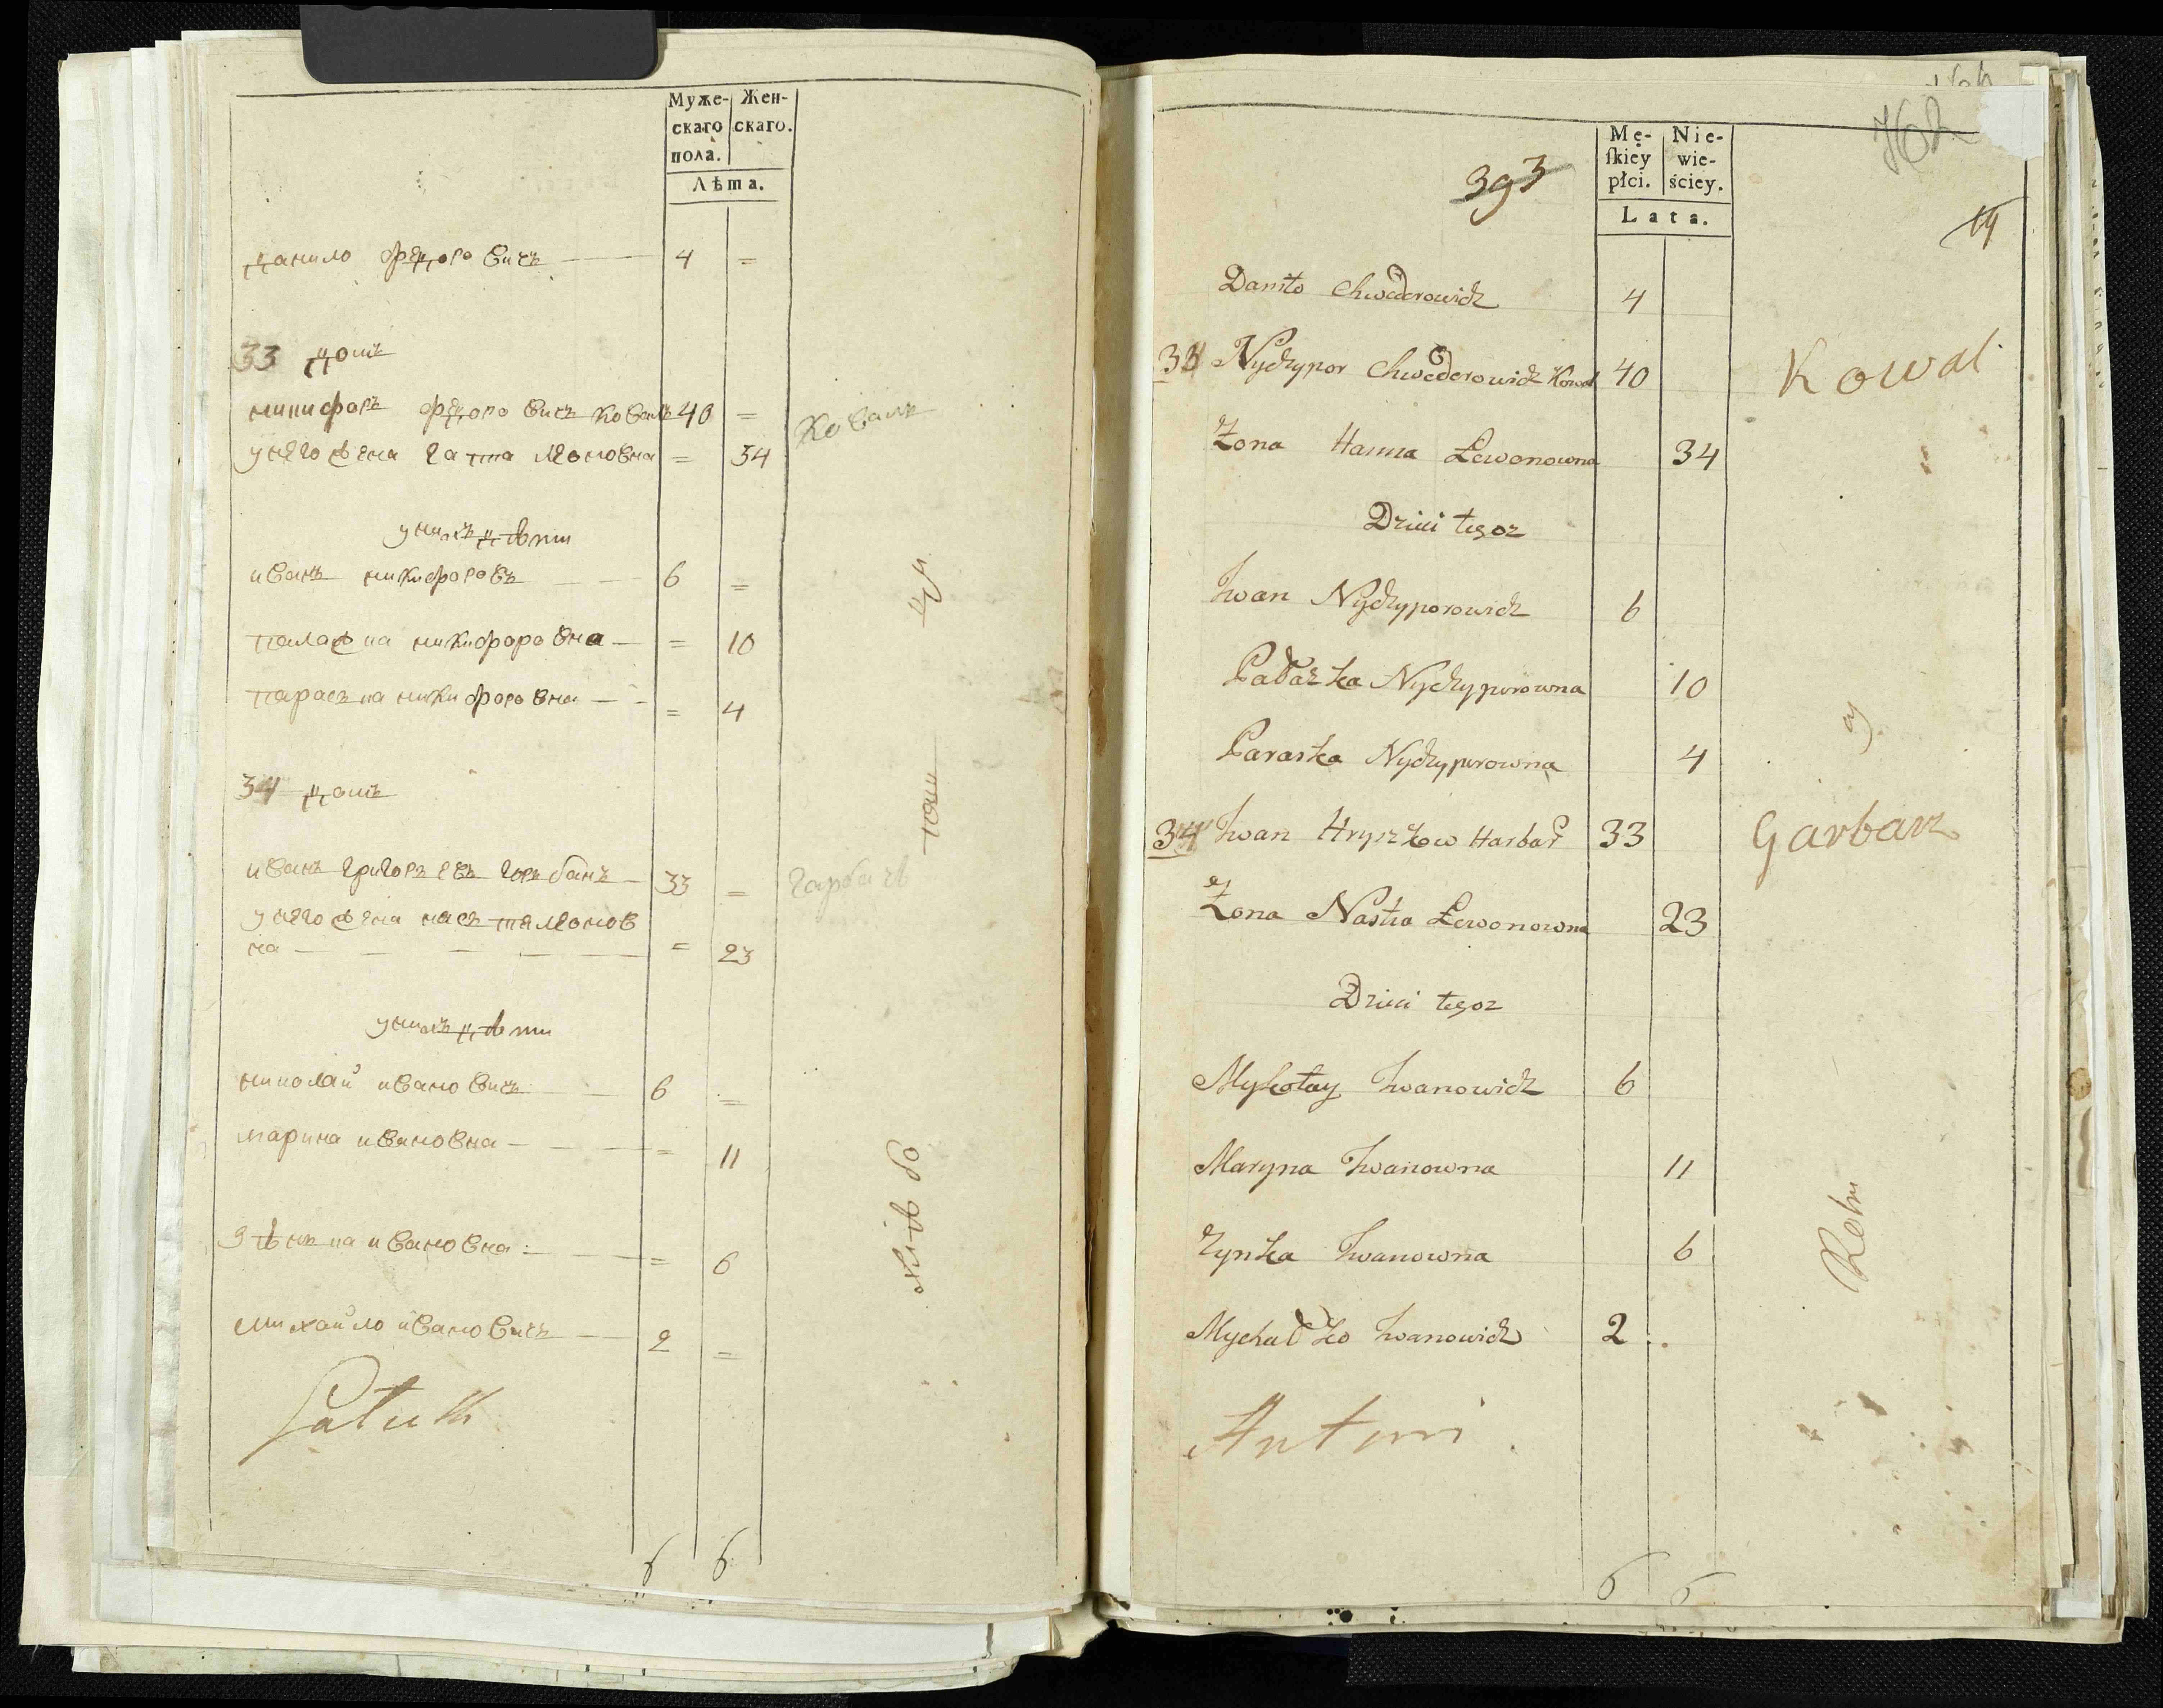 Муже-
скаго
пола.
Жен-
скаго.
Лѣта.
Данило Федоровичъ 4 =
33 Домъ
никифоръ федоровичъ коваль 40 =
Коваль
унего жена ганна леоновна = 34
унихъ дѣти
иванъ никифоровъ 6 =
палажка никифоровна = 10
параська никифоровна = 4
34 Домъ
иванъ григорьевъ гарбаръ 33 =
унего жена настя леонов
на = 23
унихъ дѣти
николай ивановичъ 6 =
марина ивановна = 11
зѣнька ивановна = 6
михайло ивановичъ 2 =
6 6
Mę-
ſkiey
płci.
Nie-
wie-
ściey.
Lata.
393
Daniło Chwederowicz 4
33 Nyczypor Chwederowicz Kowal 40
Kowal
Żona Hanna Lewonowna 34
Dzieci tegoz
Iwan Nyczyporowicz 6
Pałażka Nyczyporowna 10
Paraska Nyczyporowna 4
34 Iwan Hryszkow Harbar 33
Garbarz
Żona Nastia Lewonowna 23
Dzieci tegoz
Mykołay Iwanowicz 6
Maryna Iwanowna 11
Zynka Iwanowna 6
Mychałko Iwanowicz 2
Antoni
6 6